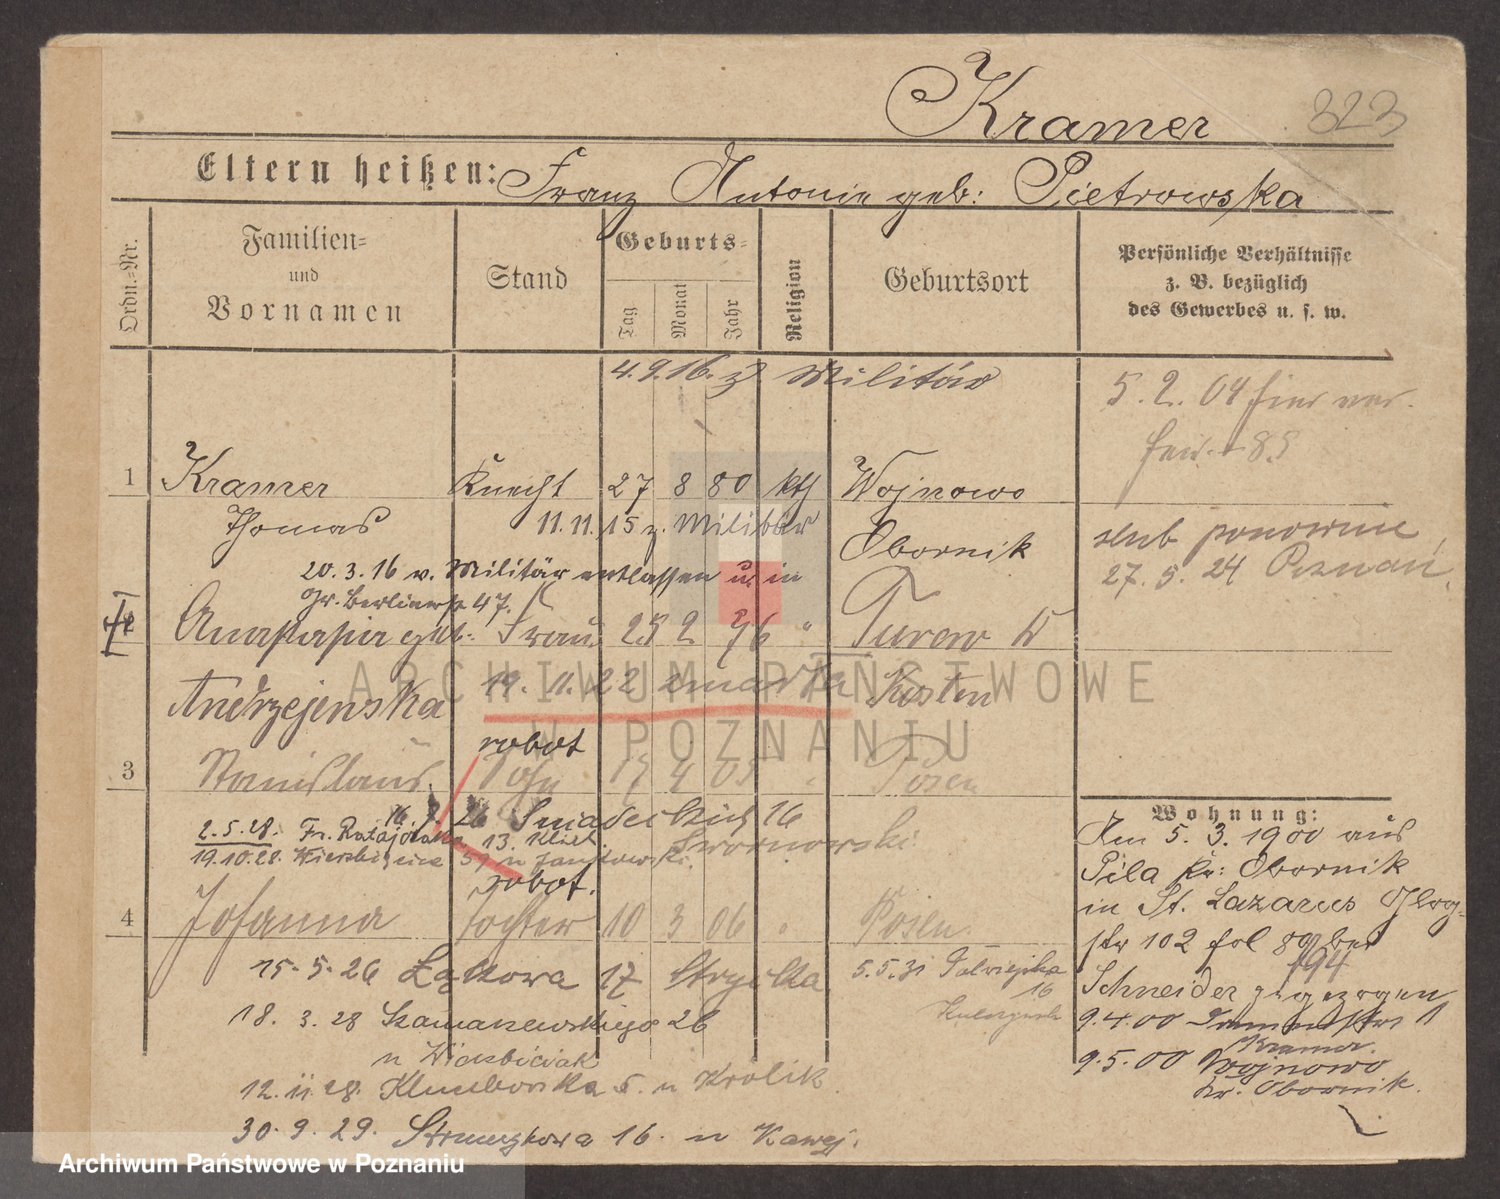 Kramer 323
Eltern heißen: Franz Antonie geb: Pietrowska
Ordn.-Nr.
Familien- und Vornamen
Stand
Geburts-
Tag Monat Jahr
Religion
Geburtsort
Persönliche Verhältnisse
z. B. bezüglich
des Gewerbes u. s. w.
4.9.16. z Militär
5.2.04 hier
1 Kramer Knecht 27 8 80 kth Wojnowo
Thomas 11.11.15 z. Militär Obornik
ślub ponownie
27.5.24 Poznań
20.3.16 v. Militär entlassen u. in
Gr. Berlinerstr 47.
Anastasia geb. Frau 25 2 76 " Turew
Andrzejewska 19.11.22 zmarła Kosten
robot
3 Stanislaus Sohn 17 4 03 " Posen
26 Śniadeckich 16
2.5.28. Fr. Ratajczaka 13.
19.10.28. Wierzbięcice 59 u Jankowski
robot.
4 Johanna Tochter 10 3 06 " Posen
15.5.26 Łąkowa 17
5.5.31
16
18.3.28 Szamarzewskiego 26
u Wierzbiciak
12.11.28. 5. u Królik
30.9.29. Strumykowa 16. u
Wohnung:
Am 5.3.1900 aus
Pila Kr: Obornik
in St. Lazarus Glog-
str 102 fol 89 bei
194
Schneider zugezogen
9.4.00
Kramer
9.5.00 Wojnowo
Kr. Obornik
ARCHIWUM PAŃSTWOWE
W POZNANIU
Archiwum Państwowe w Poznaniu